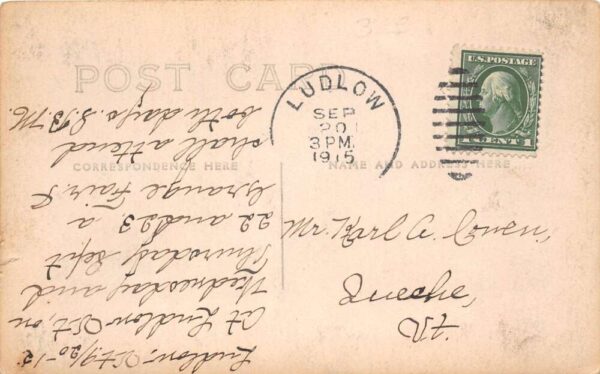 POST CARD
CORRESPONDENCE HERE
NAME AND ADDRESS HERE
LUDLOW
SEP
20
3 PM
1915
U.S. POSTAGE
1 CENT 1
Mr. Karl A.
Queche,
Vt
Ludlow, Vt 9/20-15
At Ludlow Vt, on
Wednesday and
Thursday Sept
22 and 23, a
Grange Fair. I
shall attend
both days. S. B. M.